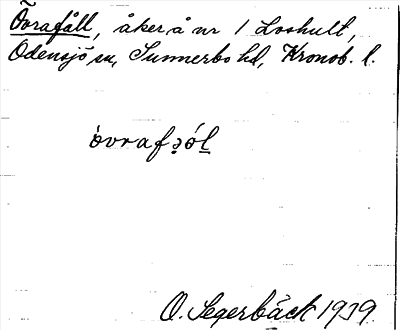 Övrafåll, åker å nr 1 Loshult,
Odensjö sn, Sunnerbo hd, Kronob. l.
òvrafʒól
O. Segerbäck 1939.